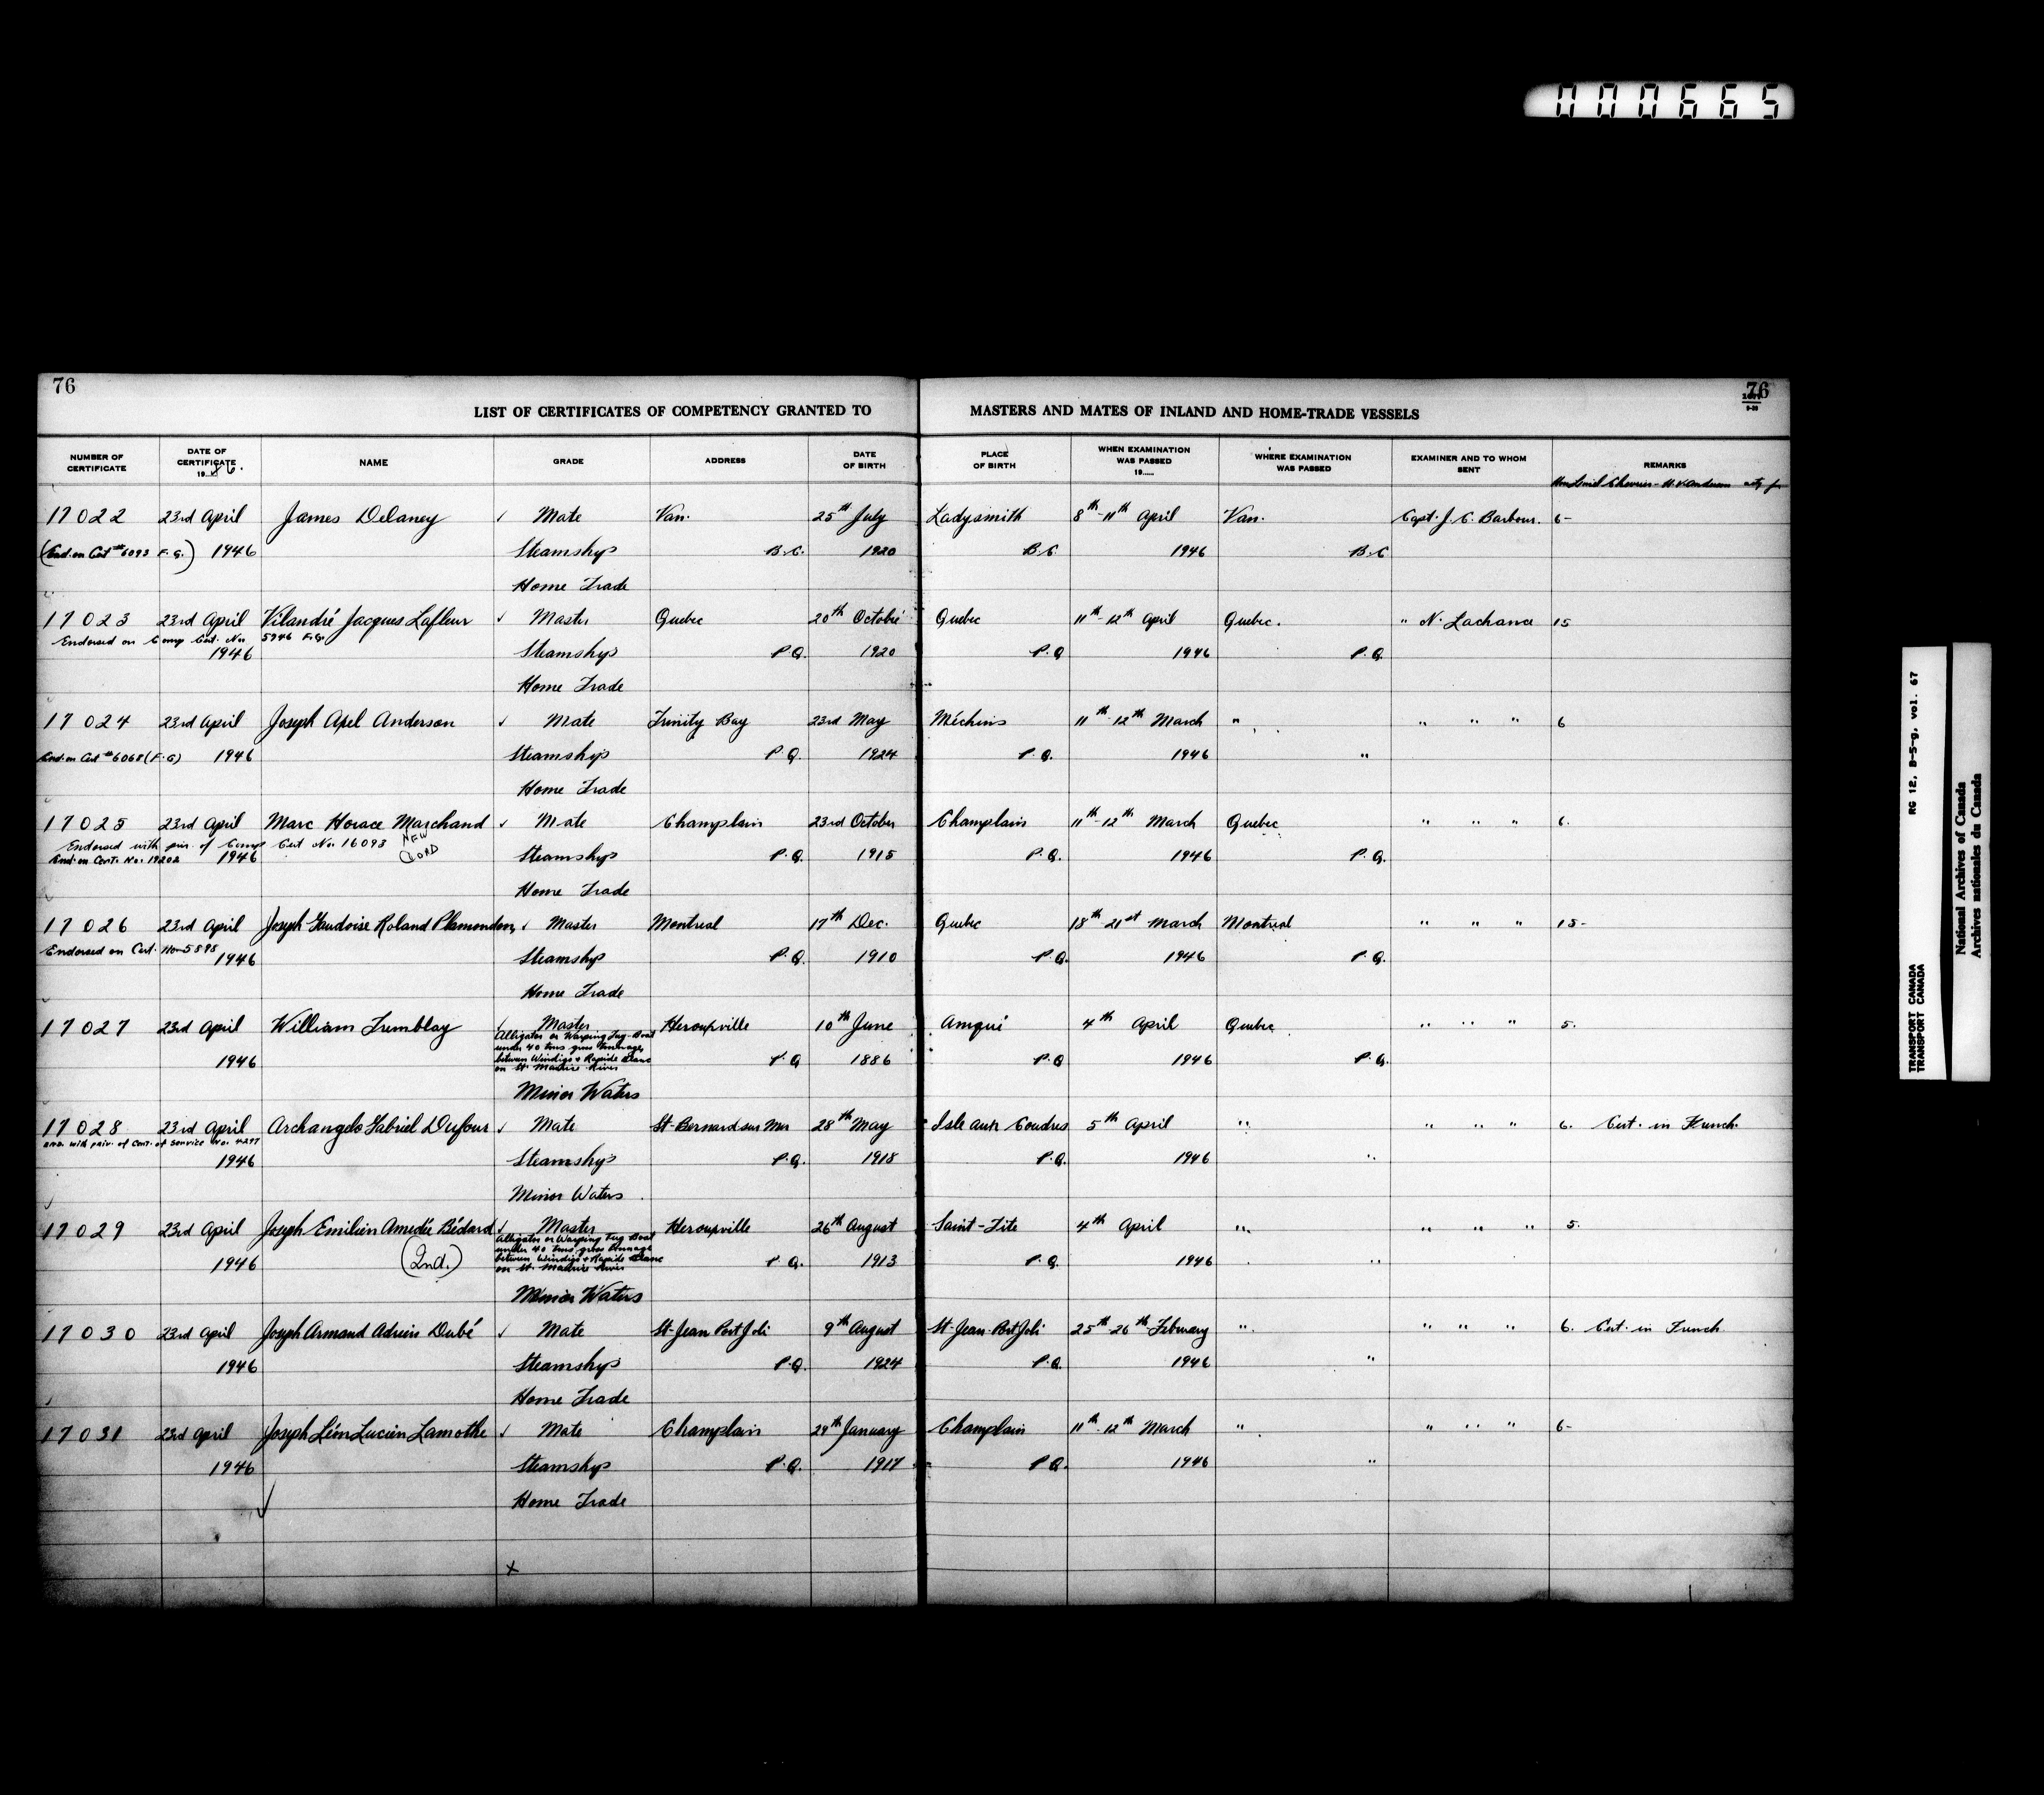 000665
76
76
LIST OF CERTIFICATES OF COMPETENCY GRANTED TO MASTERS AND MATES OF INLAND AND HOME-TRADE VESSELS
NUMBER OF CERTIFICATE DATE OF CERTIFICATE 19 46. NAME GRADE ADDRESS DATE OF BIRTH PLACE OF BIRTH WHEN EXAMINATION WAS PASSED 19..... WHERE EXAMINATION WAS PASSED EXAMINER AND TO WHOM SENT REMARKS
Hon Lionel Chevrier - H.V. Anderson
17022 23rd April James Delaney ✓ Mate Van. 25th July Ladysmith 8th-11th April Van. Capt. J. C. Barbour. 6-
(End. on Cert #6093 F.G.) 1946 Steamship B.C. 1920 B.C. 1946 B.C
Home Trade
17023 23rd April Vilandré Jacques Lafleur ✓ Master Quebec 20th Octobre Quebec 11th-12th April Quebec. " N. Lachance 15
Endorsed on Comp Cert. No. 5946 F.G.
1946 Steamship P.Q. 1920 P.Q 1946 P.Q.
Home Trade
17024 23rd April Joseph Axel Anderson ✓ Mate Trinity Bay 23rd May Méchins 11th-12th March " " " " 6
End. on Cert #6068 (F.G) 1946 Steamship P.Q. 1924 P.Q. 1946 "
Home Trade
17025 23rd April Marc Horace Marchand ✓ Mate Champlain 23rd October Champlain 11th-12th March Quebec " " " 6.
Endorsed with priv. of Comp Cert No. 16093 NEW CARD
End. on Cert. No. 19202 1946 Steamship P.Q. 1915 P.Q. 1946 P.Q.
Home Trade
17026 23rd April Joseph Gaudoise Roland Plamondon, ✓ Master Montreal 17th Dec. Quebec 18th-21st March Montreal " " " 15-
Endorsed on Cert. No. 5898
1946 Steamship P.Q. 1910 P.Q. 1946 P.Q.
Home Trade
17027 23rd April William Tremblay ✓ Master Herouxville 10th June Amqui 4th April Quebec " " " 5.
Alligator or Warping Tug-Boat
under 40 tons gross tonnage
between Windigo & Rapide Blanc
on St. Maurice River
1946 P.Q 1886 P.Q 1946 P.Q.
Minor Waters
17028 23rd April Archangelo Gabriel Dufour ✓ Mate St-Bernard sur Mer 28th May Isle aux Coudres 5th April " " " " 6. Cert. in French.
End. with priv. of Cert. of Service No. 4297
1946 Steamship P.Q. 1918 P.Q. 1946 "
Minor Waters
17029 23rd April Joseph Emilien Amedée Bédard ✓ Master Herouxville 26th August Saint-Tite 4th April " " " " 5.
Alligator or Warping Tug Boat
under 40 tons gross tonnage
between Windigo & Rapide Blanc
on St. Maurice River
1946 (2nd.) P.Q. 1913 P.Q. 1946 "
Minor Waters
17030 23rd April Joseph Armand Adrien Dubé ✓ Mate St-Jean Port Joli 9th August St-Jean-Port Joli 25th-26th February " " " " 6. Cert. in French
1946 Steamship P.Q. 1924 P.Q. 1946 "
Home Trade
17031 23rd April Joseph Léon Lucien Lamothe ✓ Mate Champlain 29th January Champlain 11th-12th March " " " " 6-
1946 Steamship P.Q. 1917 P.Q. 1946 "
Home Trade
x
TRANSPORT CANADA RG 12, B-5-g, vol. 67
TRANSPORT CANADA
National Archives of Canada
Archives nationales du Canada